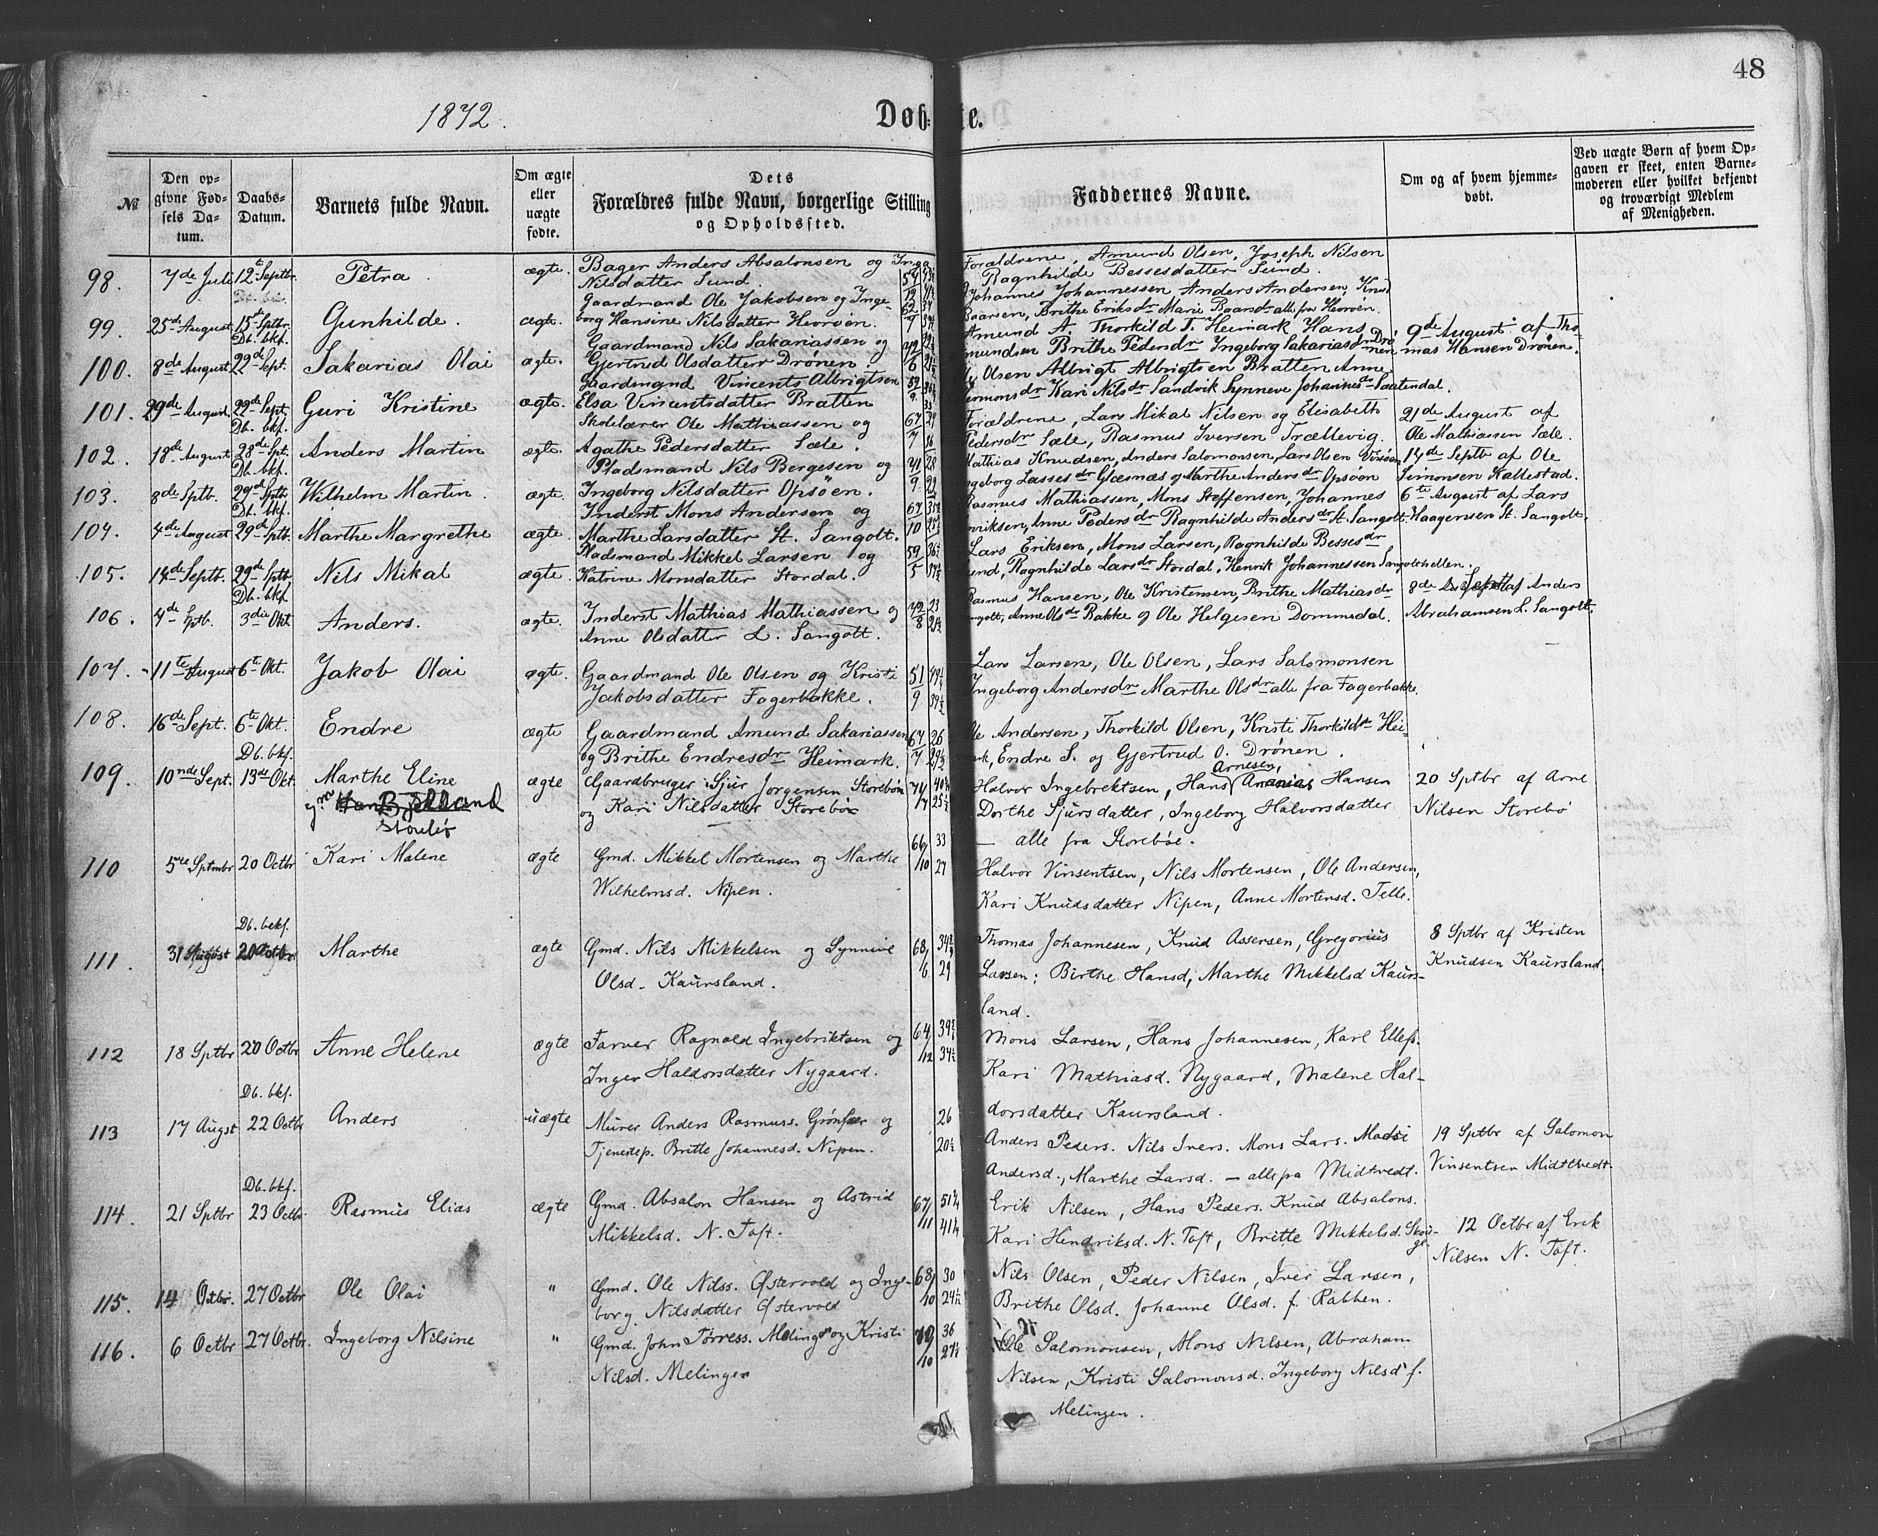 48
1872.
Døb- te.
№
Den opgivne Fødsels Datum.
Daabs-Datum.
Barnets fulde Navn.
Om ægte eller uægte fødte.
Dets Forældres fulde Navn, borgerlige Stilling og Opholdssted.
Faddernes Navne.
Om og af hvem hjemmedøbt.
Ved uægte Børn af hvem Opgaven er skeet, enten Barnemoderen eller hvilket bekjendt og troværdigt Medlem af Menigheden.
98. 7de Juli 12te Septbr. Petra. ægte. Bager Anders Absalonsen og Inga
Nilsdatter Sund.
Forældrene, Amund Olsen, Joseph Nilsen
Ragnhilde Bessesdatter Sund.
99. 25de August 15de Sptbr. Gunhilde. ægte. Gaardmand Ole Jakobsen og Inge-
borg Hansine Nilsdatter Hevrøen.
Johannes Johannessen Anders Andersen, Knud
Baarsen, Brithe Eriksdr Marie Baarsdr alle fra Hevrøen.
100. 8de August Db. bkf. 22de Sept. Sakarias Olai ægte. Gaardmand Nils Sakariassen og
Gjertrud Olsdatter Drønen.
Amund A. Thorkild T. Heimark Hans
Amundsen Brithe Pedersdr Ingeborg Sakariasdr Drønen
9de August af Tho-
mas Hansen Drønen.
101. 29de August 22de Sept. Guri Kristine ægte. Gaardmand Vincents Albrigtsen
Elsa Vincentsdatter Bratten
Olsen Albrigt Albrigtsen Bratten Anne
Kari Nilsdr Sandvik Synneve Johannesdr Saatendal.
102. 18de August Db. bkf. 28de Spt. Anders Martin ægte. Skolelærer Ole Mathiassen og
Agathe Pedersdatter Sæle.
Forældrene, Lars Mikal Nilsen og Elisabeth
Pedersdr Sæle, Rasmus Iversen Trællevig.
21de August af
Ole Mathiassen Sæle.
103. 8de Sptb. Db. bkf. 29de Sptb. Wilhelm Martin. ægte. Pladsmand Nils Bergesen og
Ingeborg Nilsdatter Opsøen.
Mathias Knudsen, Anders Salomonsen, Lars Olsen
Ingeborg Lassesdr Glæsnæs og Marthe Andersdr Opsøen
14de Septb af Ole
Simonsen Kallestad.
104. 4de August Db. bkf. 29de Sptb. Marthe Margrethe ægte. Inderst Mons Andersen og
Marthe Larsdatter St. Sangolt.
Rasmus Mathiassen, Mons Steffensen, Johannes
Henriksen, Anne Pedersdr Ragnhilde Andersdr St. Sangolt.
6te August af Lars
Haagensen St. Sangolt.
105. 14de Septb. 29de Sptb. Nils Mikal ægte. Pladsmand Mikkel Larsen og
Katrine Monsdatter Stordal.
Lars Eriksen, Mons Larsen, Ragnhilde Bessesdr
Sund, Ragnhilde Larsdr Stordal, Henrik Johannessen Sangoltshellen.
106. 4de Sptb. Db. bkf. 3die Okt Anders. ægte. Inderst Mathias Mathiassen og
Anne Olsdatter L. Sangolt.
Rasmus Hansen, Ole Kristensen, Brithe Mathiasdr
Sangolt, Anne Olsdr Bakke og Ole Helgesen Dommedal.
8de Septb af Anders
Abrahamsen L. Sangolt.
107. 11te August 6te Okt. Jakob Olai ægte. Gaardmand Ole Olsen og Kristi
Jakobsdatter Fagerbakke.
Lars Larsen, Ole Olsen, Lars Salomonsen
Ingeborg Andersdr Marthe Olsdr alle fra Fagerbakke.
108. 16de Sept. 6te Okt. Endre ægte Gaardmand Amund Sakariassen
og Brithe Endresdr Heimark.
Ole Andersen, Thorkild Olsen, Kristi Thorkildsdr Hei-
mark, Endre S. og Gjertrud O. Drønen.
109. 10nde Sept. Db. bkf. 13de Okt. Marthe Eline ægte Gaardbruger Sjur Jørgensen Storebøn
og Kari Nilsdatter Storebøn
Storebø
Halvor Ingebrektsen, Hans Arnesen, Hansen
Dorthe Sjursdatter, Ingeborg Halvorsdatter
— alle fra Storebøe.
20 Sptbr af Arne
Nilsen Storebø
110 5te Sptmbr 20 Octbr Kari Malene ægte Gmd. Mikkel Mortensen og Marthe
Wilhelmsd. Nipen.
Halvor Vinsentsen, Nils Mortensen, Ole Andersen,
Kari Knudsdatter Nipen, Anne Mortensd. Telle.
111. 31 August Db. bekf. 20 Octbr Marthe ægte Gmd. Nils Mikkelsen og Synnive
Olsd. Kaursland.
Thomas Johannesen, Knud Assersen, Gregorius
Larsen; Birthe Hansd, Marthe Mikkelsd Kaurs-
land.
8 Sptbr af Kristen
Knudsen Kaursland.
112 18 Sptbr 20 Octbr Anne Helene ægte Farver Ragnald Ingebriktsen og
Inger Haldorsdatter Nygaard.
Mons Larsen, Hans Johannesen, Karl Ellefs.
Kari Mathiasd. Nygaard, Malene Hal-
dorsdatter Kaursland.
113 17 Augst Db. bkf. 22 Octbr Anders uægte Murer Anders Rasmuss. Grønfær og
Tjenestep. Britte Johannesd. Nipen.
Anders Peders. Nils Ivers. Mons Lars.
Andersd., Marthe Larsd. — alle fra Midtvedt.
19 Sptbr af Salomon
Vinsentsen Midttvedt.
114. 21 Sptbr Db. bkf. 23 Octbr. Rasmus Elias ægte Gmd. Absalon Hansen og Astrid
Mikkelsd. N. Toft.
Erik Nilsen, Hans Peders. Knud Absalons.
Kari Hendriksd. N. Toft, Britte Mikkelsd. Skouge
12 Octbr af Erik
Nilsen N. Toft.
115. 14 Octbr. 27 Octbr Ole Olai " Gmd. Ole Nilss. Østervold og Inge-
borg Nilsdatter Østervold
Nils Olsen, Peder Nilsen, Iver Larsen,
Brithe Olsd. Johanne Olsd. f. Rabben.
116. 6 Octbr 27 Octbr. Ingeborg Nilsine " Gmd. John Tørress. Melingen og Kristi
Nilsd. Melingen
Ole Salomonsen, Mons Nilsen, Abraham
Nilsen, Kristi Salomonsd. Ingeborg Nilsd f.
Melingen.